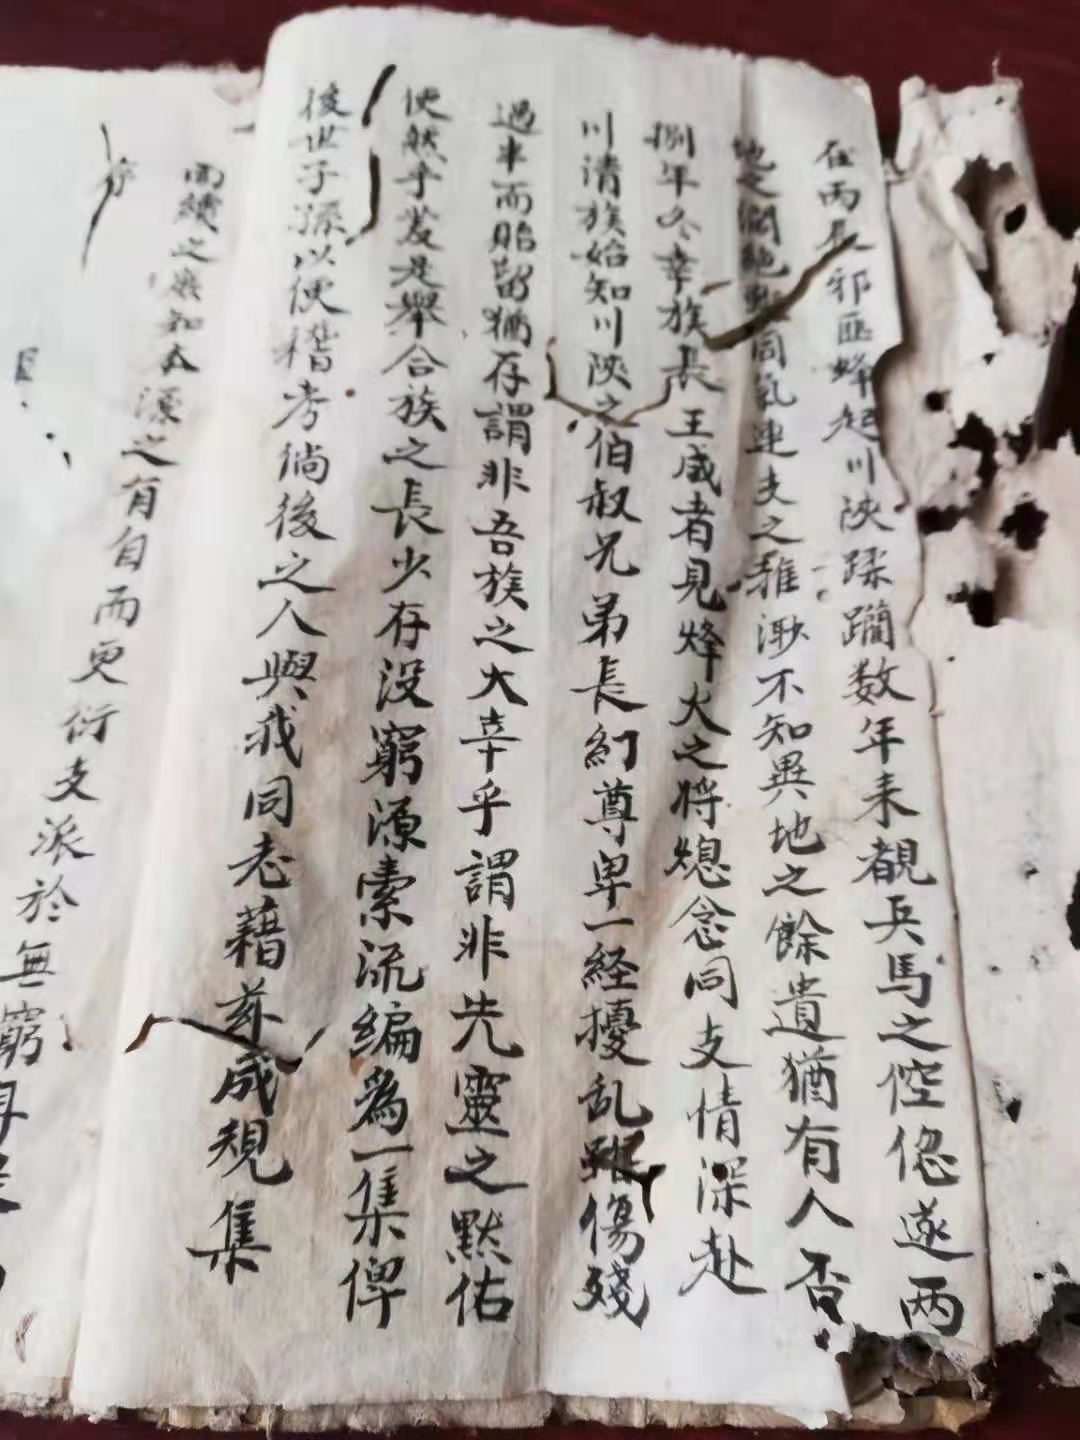 在丙辰邪匪蜂起川陝蹂躪数年来覩兵馬之倥偬遂两
地之濶絶同氣連支之雅渺不知異地之餘遺猶有人否
捌年冬幸族長王咸者見烽火之將熄念同支情深赴
川清族始知川陝之伯叔兄弟長幼尊卑一経擾乱傷殘
過半而貽留猶存謂非吾族之大幸乎謂非先靈之默佑
使然乎爰是舉合族之長少存没窮源索流編為一集俾
後世子孫以便稽考倘後之人與我同志藉茲成規集
而續之庶知本源之有自而更衍支派於無窮
序